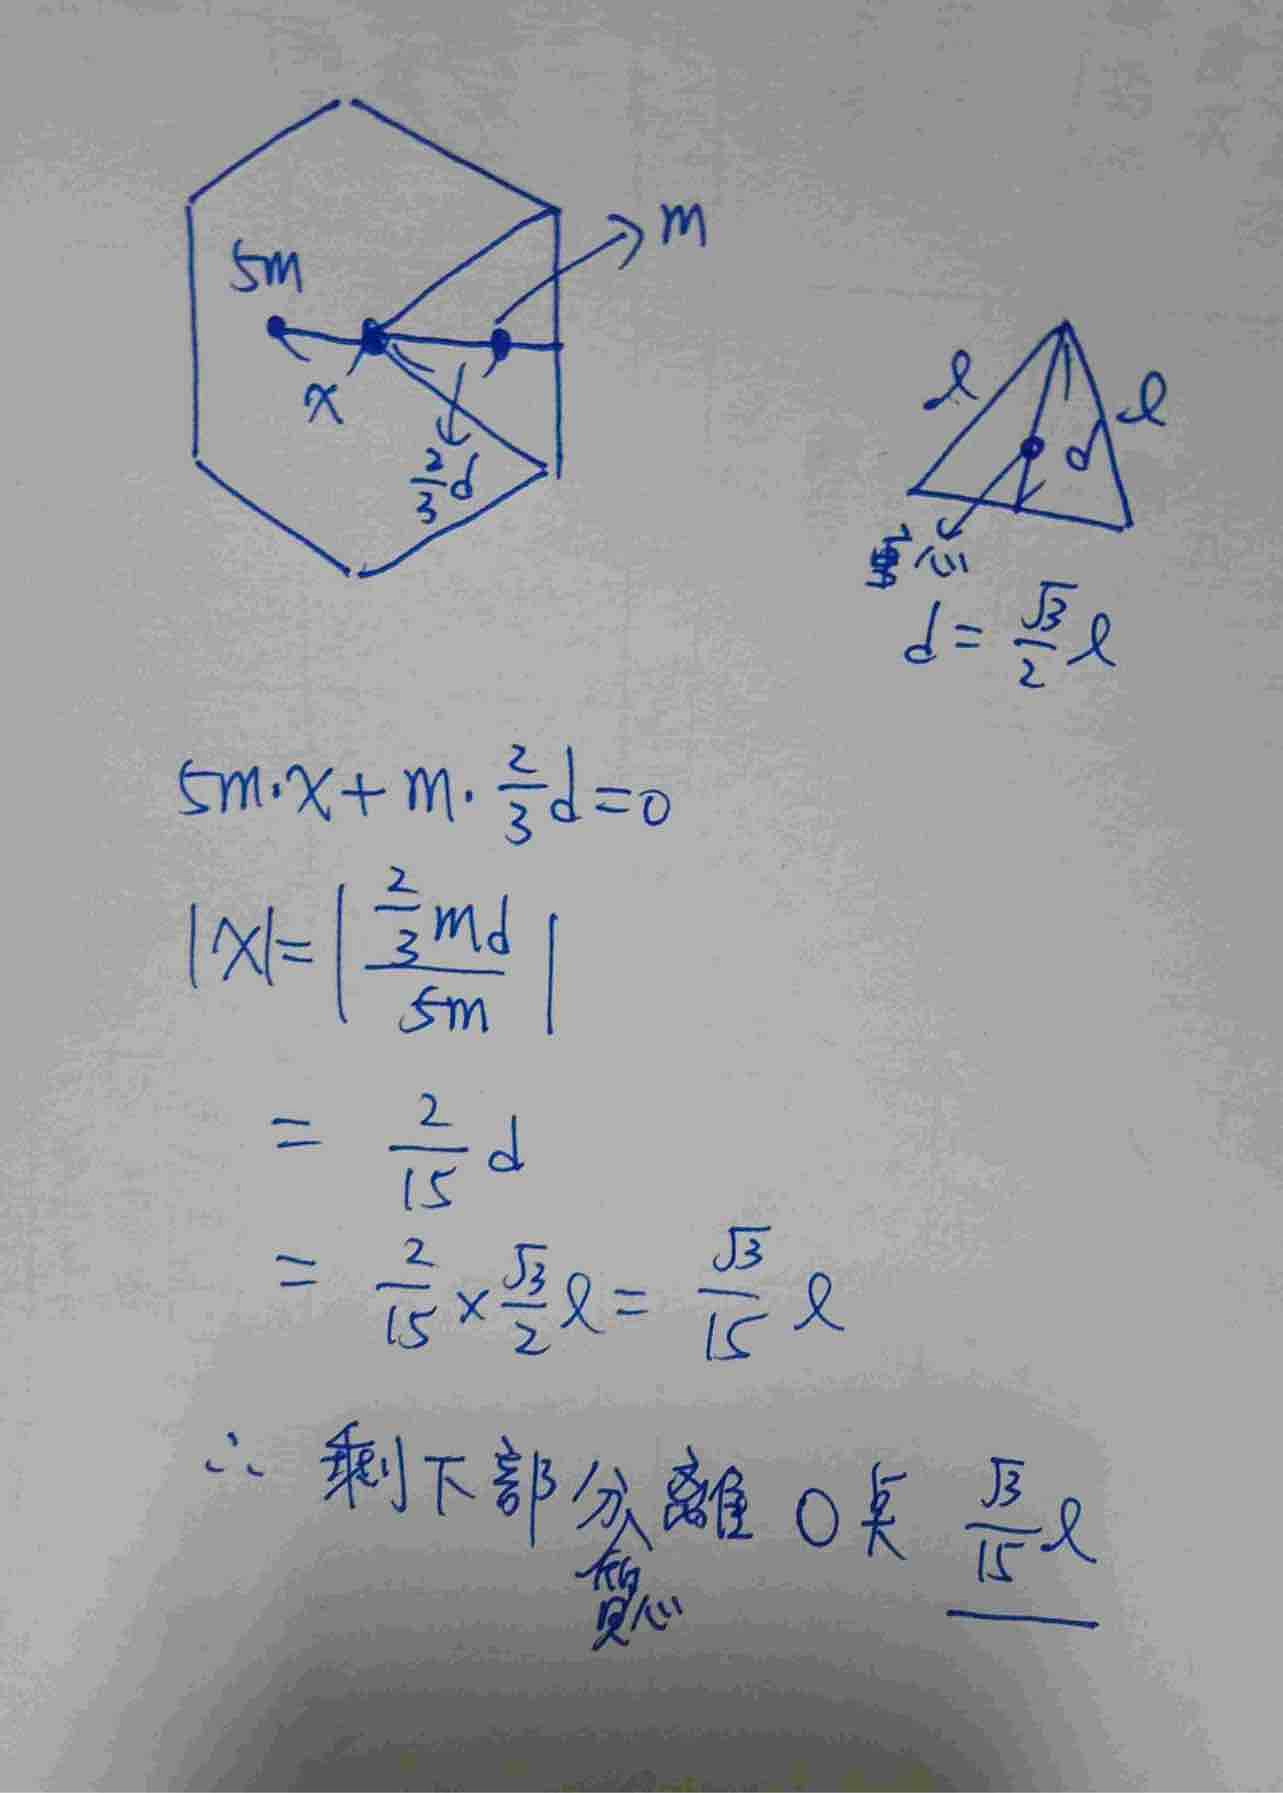 5m
m
x
2/3 d
l
l
d
重心
d = √3/2 l
5m·x + m· 2/3 d = 0
|x| = | 2/3 md / 5m |
= 2/15 d
= 2/15 × √3/2 l = √3/15 l
∴ 剩下部分離 O 点 √3/15 l
質心